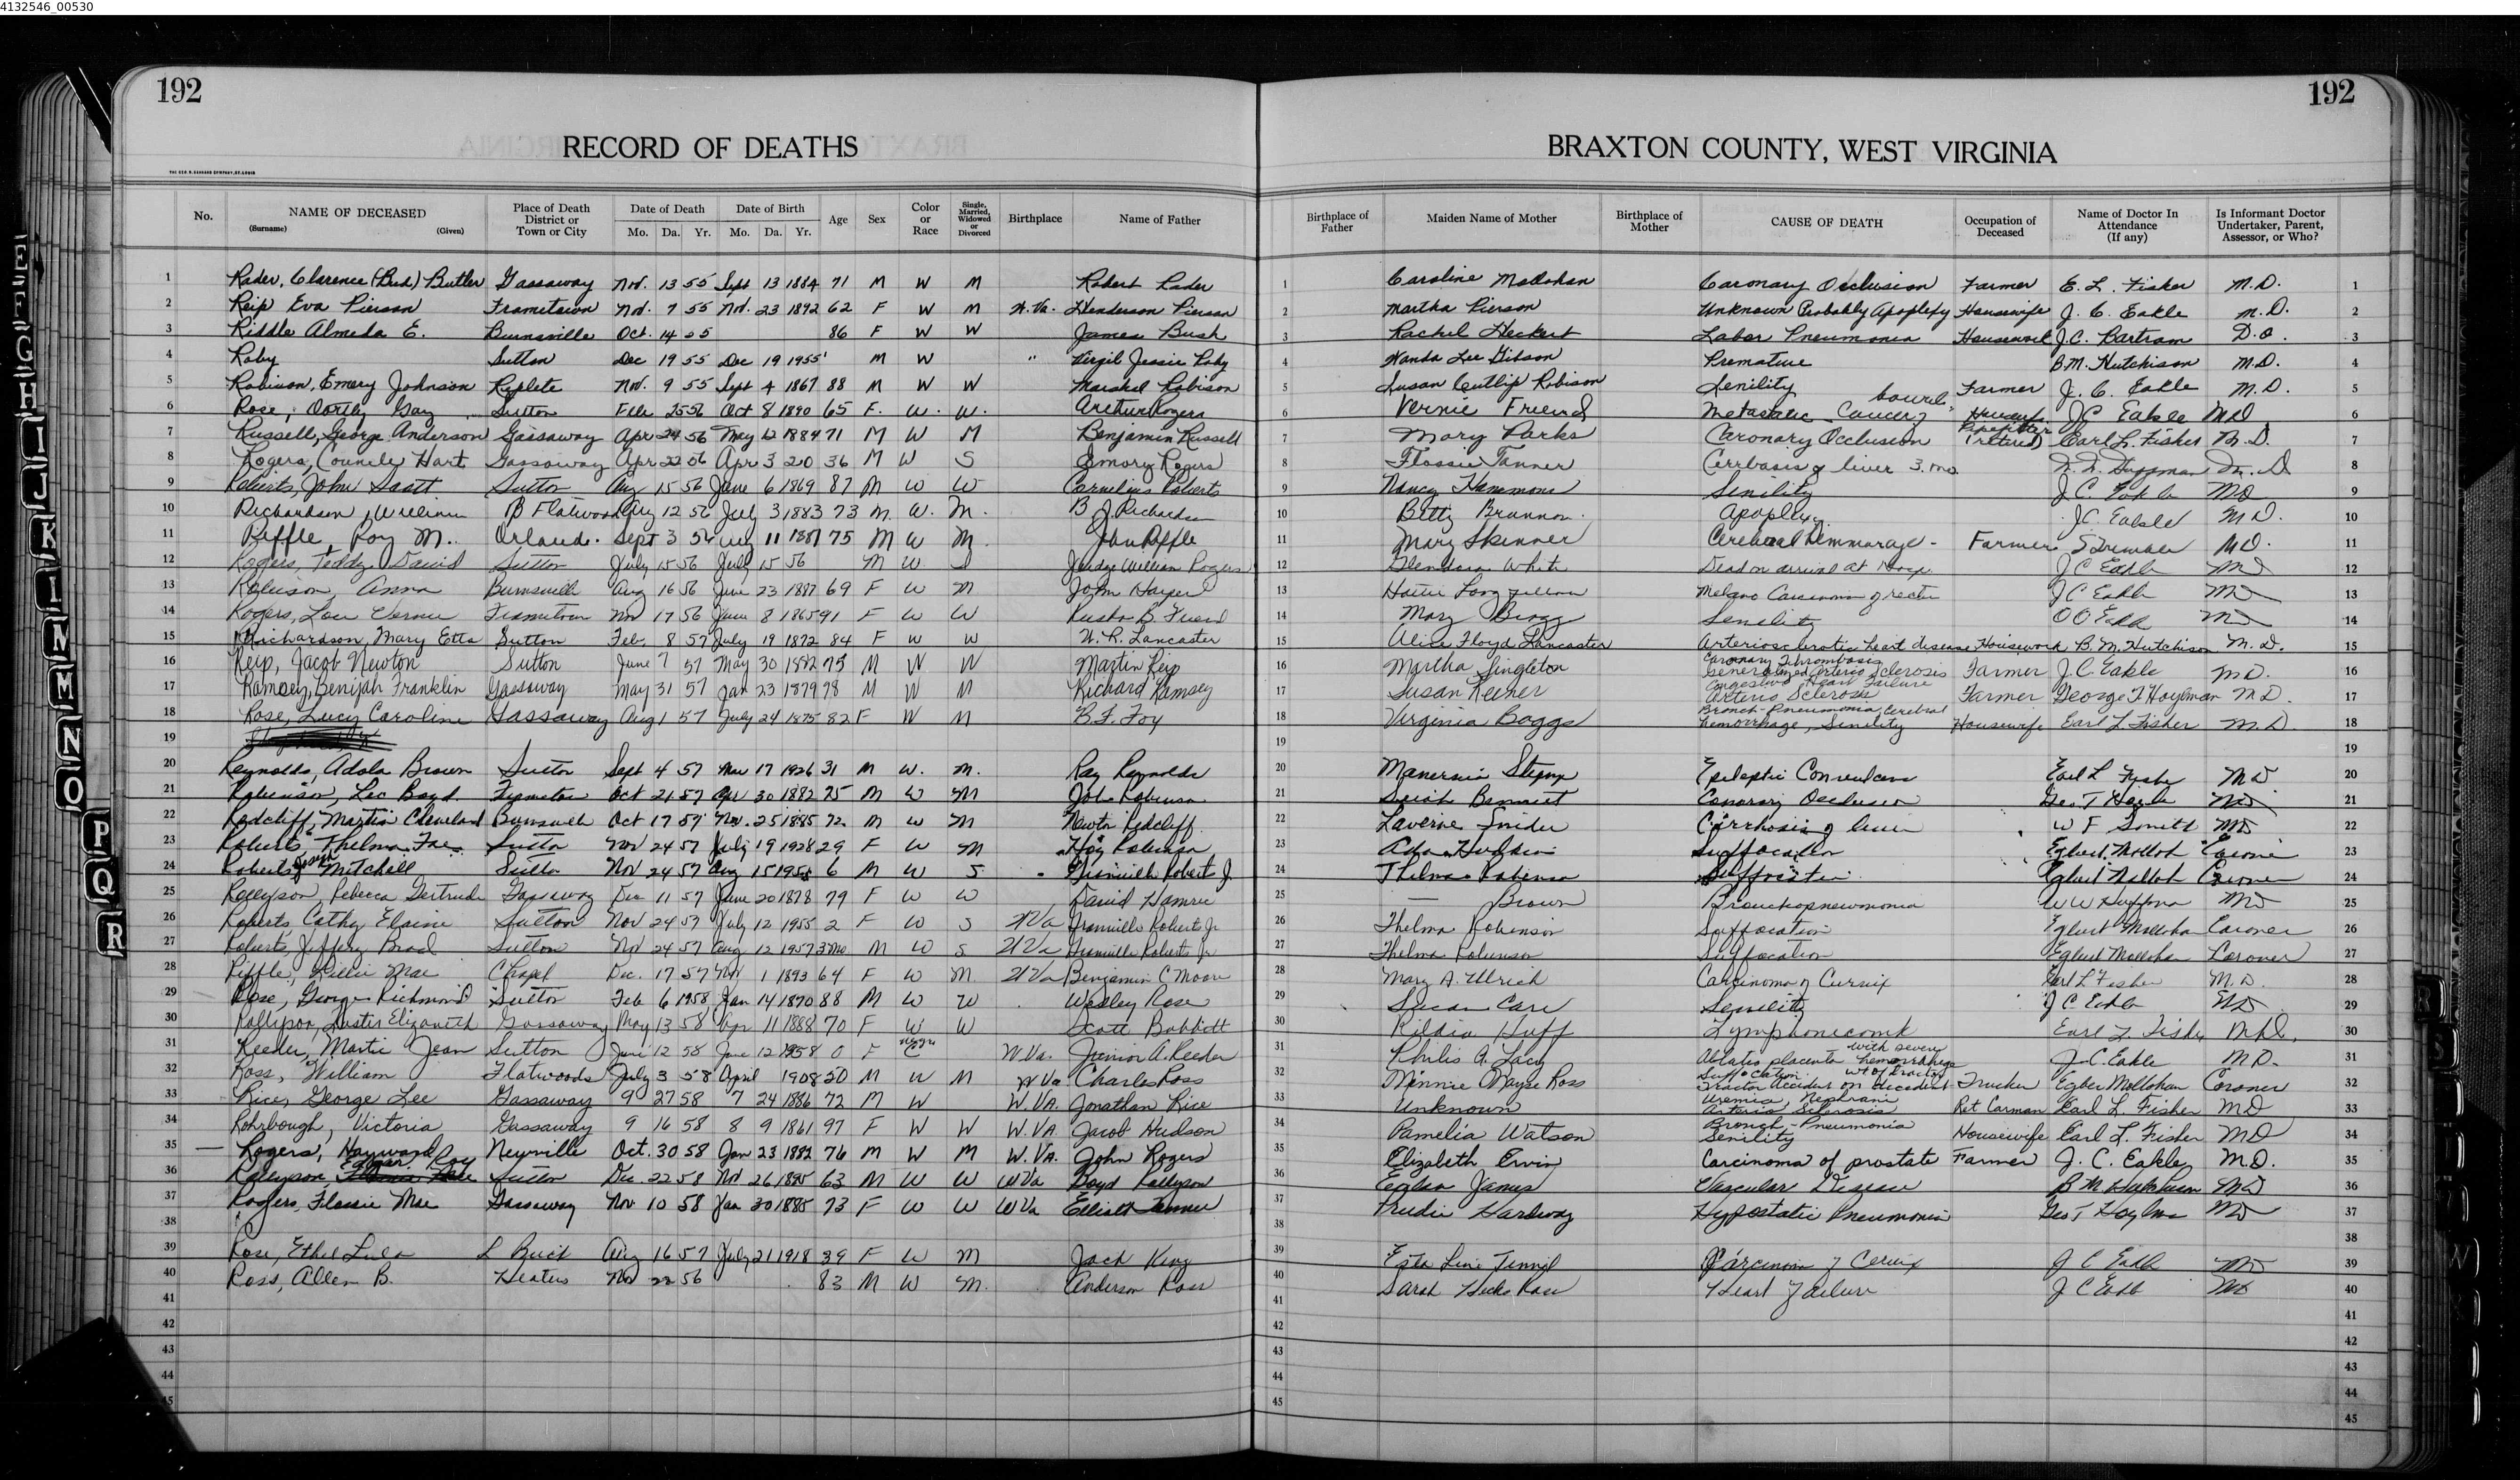 4132546_00530
192
192
RECORD OF DEATHS
BRAXTON COUNTY, WEST VIRGINIA
No. NAME OF DECEASED (Surname) (Given) Place of Death District or Town or City Date of Death Mo. Da. Yr. Date of Birth Mo. Da. Yr. Age Sex Color or Race Single, Married, Widowed or Divorced Birthplace Name of Father Birthplace of Father Maiden Name of Mother Birthplace of Mother CAUSE OF DEATH Occupation of Deceased Name of Doctor In Attendance (If any) Is Informant Doctor Undertaker, Parent, Assessor, or Who?
1 Rader, Clarence (Bud) Butler Gassaway Nov. 13 55 Sept 13 1884 71 M W M Robert Rader 1 Caroline Mollohan Coronary Occlusion Farmer E. L. Fisher M.D. 1
2 Reip Eva Pierson Frametown Nov. 7 55 Nov. 23 1892 62 F W M W. Va. Henderson Pierson 2 Martha Pierson Unknown Probably Apoplexy Housewife J. C. Eakle M.D. 2
3 Riddle Almeda E. Burnsville Oct. 14 55 86 F W W James Bush 3 Rachel Heckert Lobar Pneumonia Housework J.C. Bartram D.O. 3
4 Roby Sutton Dec 19 55 Dec 19 1955 M W " Virgil Jessie Roby 4 Wanda Lee Gibson Premature B.M. Hutchison M.D. 4
5 Robison, Emery Johnson Replete Nov. 9 55 Sept 4 1867 88 M W W Marshal Robison 5 Susan Cutlip Robison Senility Farmer J. C. Eakle M.D. 5
6 Rose, Gay Sutton Feb 25 56 Oct 8 1890 65 F. W. W. Arthur Rogers 6 Vernie Friend Metastatic Cancer of bowels Housewife J C Eakle MD 6
7 Russell, George Anderson Gassaway Apr 24 56 May 12 1884 71 M W M Benjamin Russell 7 Mary Parks Coronary Occlusion Pipefitter (retired) Earl L. Fisher M.D. 7
8 Rogers, Hart Gassaway Apr 22 56 Apr 3 20 36 M W S Emory Rogers 8 Flossie Tanner Cerrbosis of liver 3 mo. Huffman M.D 8
9 Roberts, John Scott Sutton Aug 15 56 June 6 1869 87 M W W Cornelius Roberts 9 Nancy Hammons Senility J C. Eakle MD 9
10 Richardson, William B Flatwoods Aug 12 56 July 3 1883 73 M. W. M. B J Richardson 10 Betty Brannon Apoplexy J.C. Eakle M D. 10
11 Riffle, Roy M. Orlando. Sept 3 56 Aug 11 1881 75 M W M John Riffle 11 Mary Skinner Cerebral Hemmorage - Farmer MD. 11
12 Rogers, Teddy David Sutton July 15 56 July 15 56 M W S Judge William Rogers 12 Glendora White Dead on arrival at Hosp. J C Eakle MD 12
13 Robinson, Anna Burnsville Aug 16 56 June 23 1887 69 F W M John Harper 13 Hattie Melano Carcinoma of rectum J C Eakle MD 13
14 Rogers, Lou Vernie Frametown Nov 17 56 June 8 1865 91 F W W B. Friend 14 Mary Senility Eakle MD 14
15 Richardson, Mary Etta Sutton Feb. 8 57 July 19 1872 84 F W W W. R. Lancaster 15 Alice Floyd Lancaster Arteriosclerotic heart disease Housework B. M. Hutchison M.D. 15
16 Reip, Jacob Newton Sutton June 7 57 May 30 1882 75 M W W Martin Reip 16 Martha Singleton Coronary Thrombosis Generalized Arterio Sclerosis Farmer J.C. Eakle M D. 16
17 Ramsey, Benijah Franklin Gassaway May 31 57 Jan 23 1879 78 M W M Richard Ramsey 17 Susan Keener Congestive Heart Failure Arterio Sclerosis Farmer George T. Hoylman M D. 17
18 Rose, Lucy Caroline Gassaway Aug 1 57 July 24 1875 82 F W M B. F. Foy 18 Virginia Boggs Bronch-Pneumonia, Cerebral hemorrhage, Senility Housewife Earl L. Fisher M.D. 18
19 19 19
20 Reynolds, Adola Brown Sutton Sept 4 57 Mar 17 1926 31 M W. M. Ray Reynolds 20 Epileptic Convulsions Earl L Fisher M D 20
21 Robinson, Lee Boyd Frametown Oct 21 57 Apr 30 1882 75 M W M John Robinson 21 Coronary Occlusion Geo T MD 21
22 Redcliff, Martin Cleveland Burnsville Oct 17 57 Nov. 25 1885 72 M W M Newton Redcliff 22 Laverne Snider Cirrhosis of liver W F Smith MD 22
23 Roberts, Thelma Fae Sutton Nov 24 57 July 19 1928 29 F W M Robinson 23 Suffocation Egbert Molloh Coroner 23
24 Roberts, Joseph Mitchell Sutton Nov 24 57 Aug 15 195 6 M W S Granville Roberts Jr 24 Thelma Robinson Suffocation Egbert Molloh Coroner 24
25 Rollyson, Rebecca Gertrude Gassaway Dec 11 57 June 20 1878 79 F W W David Hamric 25 — Brown Bronchopneumonia W W Huffman MD 25
26 Roberts, Cathy Elaine Sutton Nov 24 57 July 12 1955 2 F W S W Va Granville Roberts Jr 26 Thelma Robinson Suffocation Egbert Molloha Coroner 26
27 Roberts, Jeffery Brad Sutton Nov 24 57 Aug 12 1957 3 mo M W S W Va Granville Roberts Jr 27 Thelma Robinson Suffocation Egbert Mollohan Coroner 27
28 Riffle, Lillie Mae Chapel Dec. 17 57 Nov 1 1893 64 F W M. W Va Benjamin C Moore 28 Mary A. Ulrich Carcinoma of Cervix Earl L Fisher M.D. 28
29 Rose, George Richmond Sutton Feb 6 1958 Jan 14 1870 88 M W W Wesley Rose 29 Susan Carr Senility J C Eakle MD 29
30 Rollyson, Elizabeth Gassaway May 13 58 Apr 11 1888 70 F W W Scott Bobbitt 30 Rildia Huff Earl L. Fisher M.D. 30
31 Reeder, Marti Jean Sutton June 12 58 June 12 1958 0 F Negro C W.Va. Junior A. Reeder 31 Philis A. Lacy Ablatio placenta with severe hemorrhage J. C. Eakle M D. 31
32 Ross, William Flatwoods July 3 58 April 1908 50 M W M W Va Charles Ross 32 Minnie Mayse Ross Suffocation wt of tractor Tractor Accident on decedent Trucker Egber Mollohan Coroner 32
33 Rice, George Lee Gassaway 9 27 58 7 24 1886 72 M W W.VA. Jonathan Rice 33 Unknown Uremia, Arterio Sclerosis Ret Carman Earl L. Fisher MD 33
34 Rohrbough, Victoria Gassaway 9 16 58 8 9 1861 97 F W W W.VA. Jacob Hudson 34 Pamelia Watson Bronch-Pneumonia Senility Housewife Earl L. Fisher MD 34
35 Rogers, Hayward Newville Oct. 30 58 Jan 23 1882 76 M W M W.VA. John Rogers 35 Elizabeth Ervin Carcinoma of prostate Farmer J. C. Eakle M.D. 35
36 Rollyson, Roy Sutton Dec. 22 58 Nov 26 1895 63 M W W W Va Boyd Rollyson 36 James Vascular Disease B M Hutchison MD 36
37 Rogers, Flossie Mae Gassaway Nov 10 58 Jan 30 1885 73 F W W W Va Elliott Tanner 37 Prudie Hardway Hypostatic Pneumonia Geo T Hoylman MD 37
38 38 38
39 Rose, Ethel Lula Aug 16 57 July 21 1918 39 F W M Jack King 39 Carcinoma of Cervix J C Eakle MD 39
40 Ross, Allen B. Heaters Nov 22 56 83 M W M. Anderson Ross 40 Sarah Hicks Ross Heart Failure J C Eakle MD 40
41 41 41
42 42 42
43 43 43
44 44 44
45 45 45
E F G H I J K L N M N O P Q R
R S